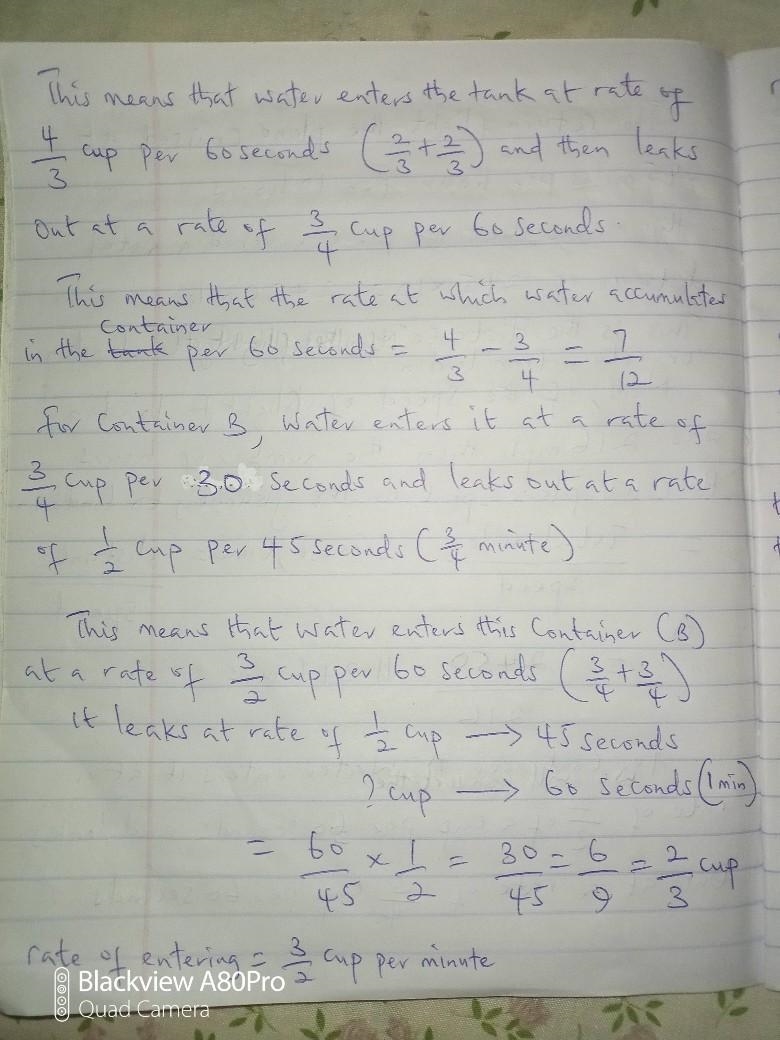 This means that water enters the tank at rate of
4/3 cup per 60 seconds (2/3 + 2/3) and then leaks
out at a rate of 3/4 cup per 60 seconds.
This means that the rate at which water accumulates
in the tank container per 60 seconds = 4/3 - 3/4 = 7/12
for Container B, water enters it at a rate of
3/4 cup per 30 seconds and leaks out at a rate
of 1/2 cup per 45 seconds (3/4 minute)
This means that water enters this Container (B)
at a rate of 3/2 cup per 60 seconds (3/4 + 3/4)
it leaks at rate of 1/2 cup → 45 seconds
? cup → 60 seconds (1 min)
= 60/45 × 1/2 = 30/45 = 6/9 = 2/3 cup
rate of entering = 3/2 cup per minute
Blackview A80Pro
Quad Camera